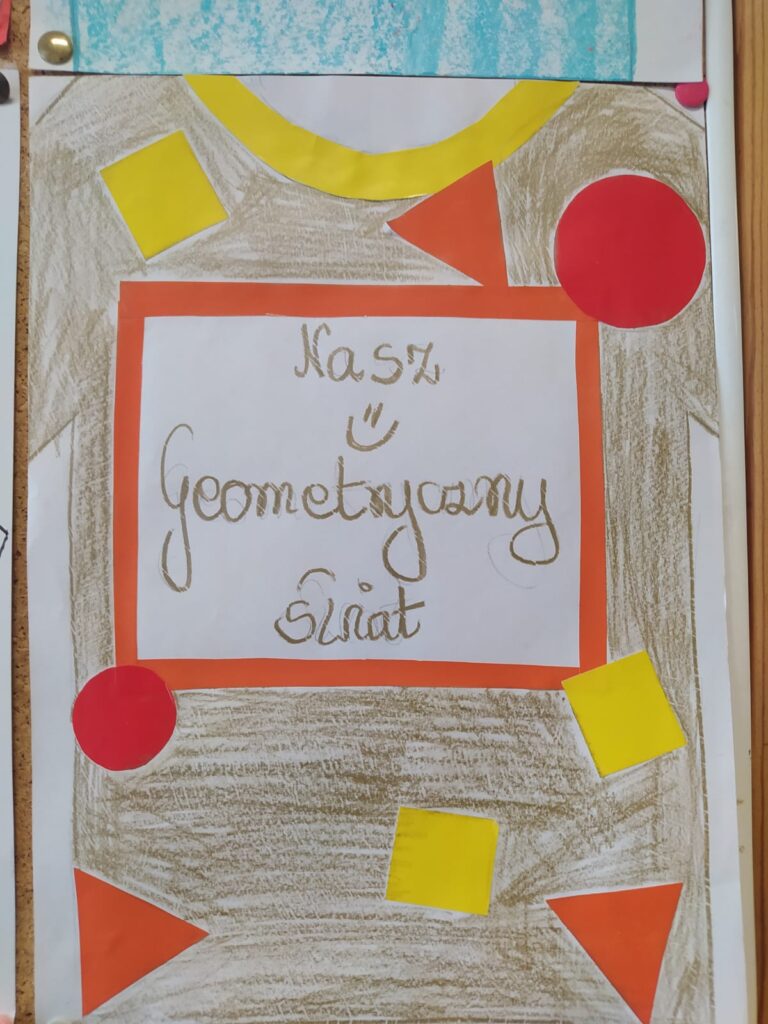 Nasz
Geometryczny
świat